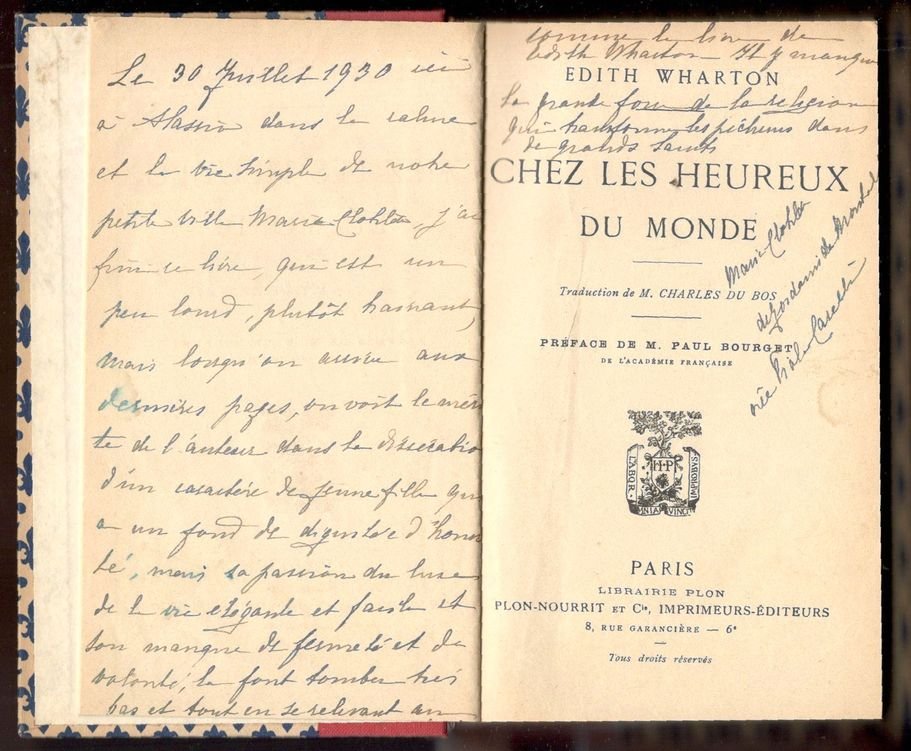 Le 30 Juillet 1930 ici
à Alassio dans le calme
et la vie simple de notre
petite ville Maria Clotilde, j'ai
fini ce livre, qui est un
peu lourd, plutôt
mais lorsqu'on arrive aux
dernières pages, on voit le méri
te de l'auteur dans la dissectatio
d'un caractère de jeune fille qui
a un fond de dignité e d'honne
té, mais la passion du luxe
de la vie elégante et facile et
son manque de fermeté et de
volonté, la font tomber très
bas et tout en se relevant au
comme le livre de
Edith Wharton Il y manque
la grande force de la religion
qui transforme les pécheurs dans
de grands saints
EDITH WHARTON
CHEZ LES HEUREUX
DU MONDE
Maria Clotilde
née
Traduction de M. CHARLES DU BOS
PRÉFACE DE M. PAUL BOURGET
DE L'ACADÉMIE FRANÇAISE
LABOR
OMNIA VINCIT
IMPROBVS
H·P
PARIS
LIBRAIRIE PLON
PLON-NOURRIT ET Cie, IMPRIMEURS-ÉDITEURS
8, RUE GARANCIÈRE — 6e
Tous droits réservés